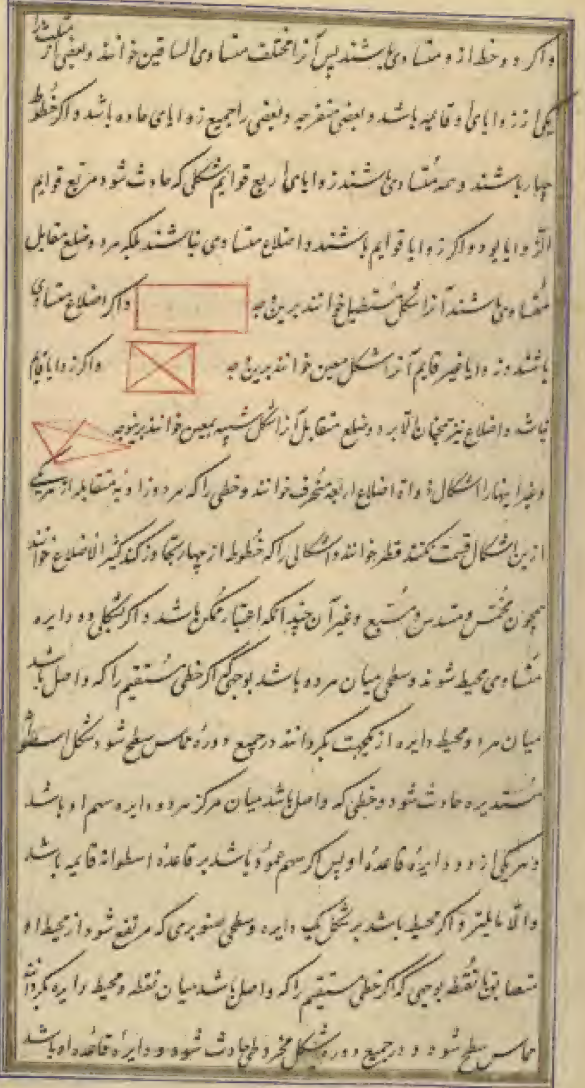 واکر دو خط از و متساوی باشند پس آنرا مختلف متساوی الساقین خوانند و بعضی از مثلث را
یکی از زوایای او قائمه باشد و بعضی منفرجه و بعضی را جمیع زوایای حاده باشد و اکر خطوط
چهار باشند و همه متساوی باشند زوایای اربع قوایم شکلی که حادث شود مربع قوایم
الزوایا بود و اکر زوایا قوایم باشند و اضلاع متساوی نباشند بلکه هر دو ضلع مقابل
متساوی باشند آنرا شکل مستطیل خوانند برین وجه و اکر اضلاع متساوی
باشند و زوایا غیر قایم آنرا شکل معین خوانند برین وجه و اکر زوایا قایم
نباشد و اضلاع نیز همچنان الا هر دو ضلع متقابل آنرا شکل شبیه بمعین خوانند برینوجه
و غیر اینها را اشکال ذوات اضلاع اربعه منحرف خوانند و خطی را که هر دو زاویه متقابله از هر یکی
ازین اشکال قسمت نکند قطر خوانند و اشکالی را که خطوط از چهار تجاوز کند کثیر الاضلاع خوانند
همچون مخمس و مسدس و مسبع و غیر آن چندانکه اعتبار ممکن باشد و اکر بشکلی دو دایره
متساوی محیط شوند و سطحی میان هر دو باشد بوجهی که اکر خطی مستقیم را که واصل باشد
میان هر دو محیط دایره از یکجهت بکردانند در جمیع دوره مماس سطح شود شکل اسطوانه
مستدیره حادث شود و خطی که واصل باشد میان مرکز هر دو دایره سهم او باشد
و هر یکی از دو دایره قاعده او پس اکر سهم عمود باشد بر قاعده اسطوانه قایمه باشد
والا مایله و اکر محیط باشد بر شکل یک دایره و سطحی صنوبری که مرتفع شود از محیط او
متضایق تا نقطه بوجهی که اکر خطی مستقیم را که واصل باشد میان نقطه و محیط دایره بکردانند
مماس سطح شود و در جمیع دوره شکل مخروطی حادث شود و دایره قاعده او باشد